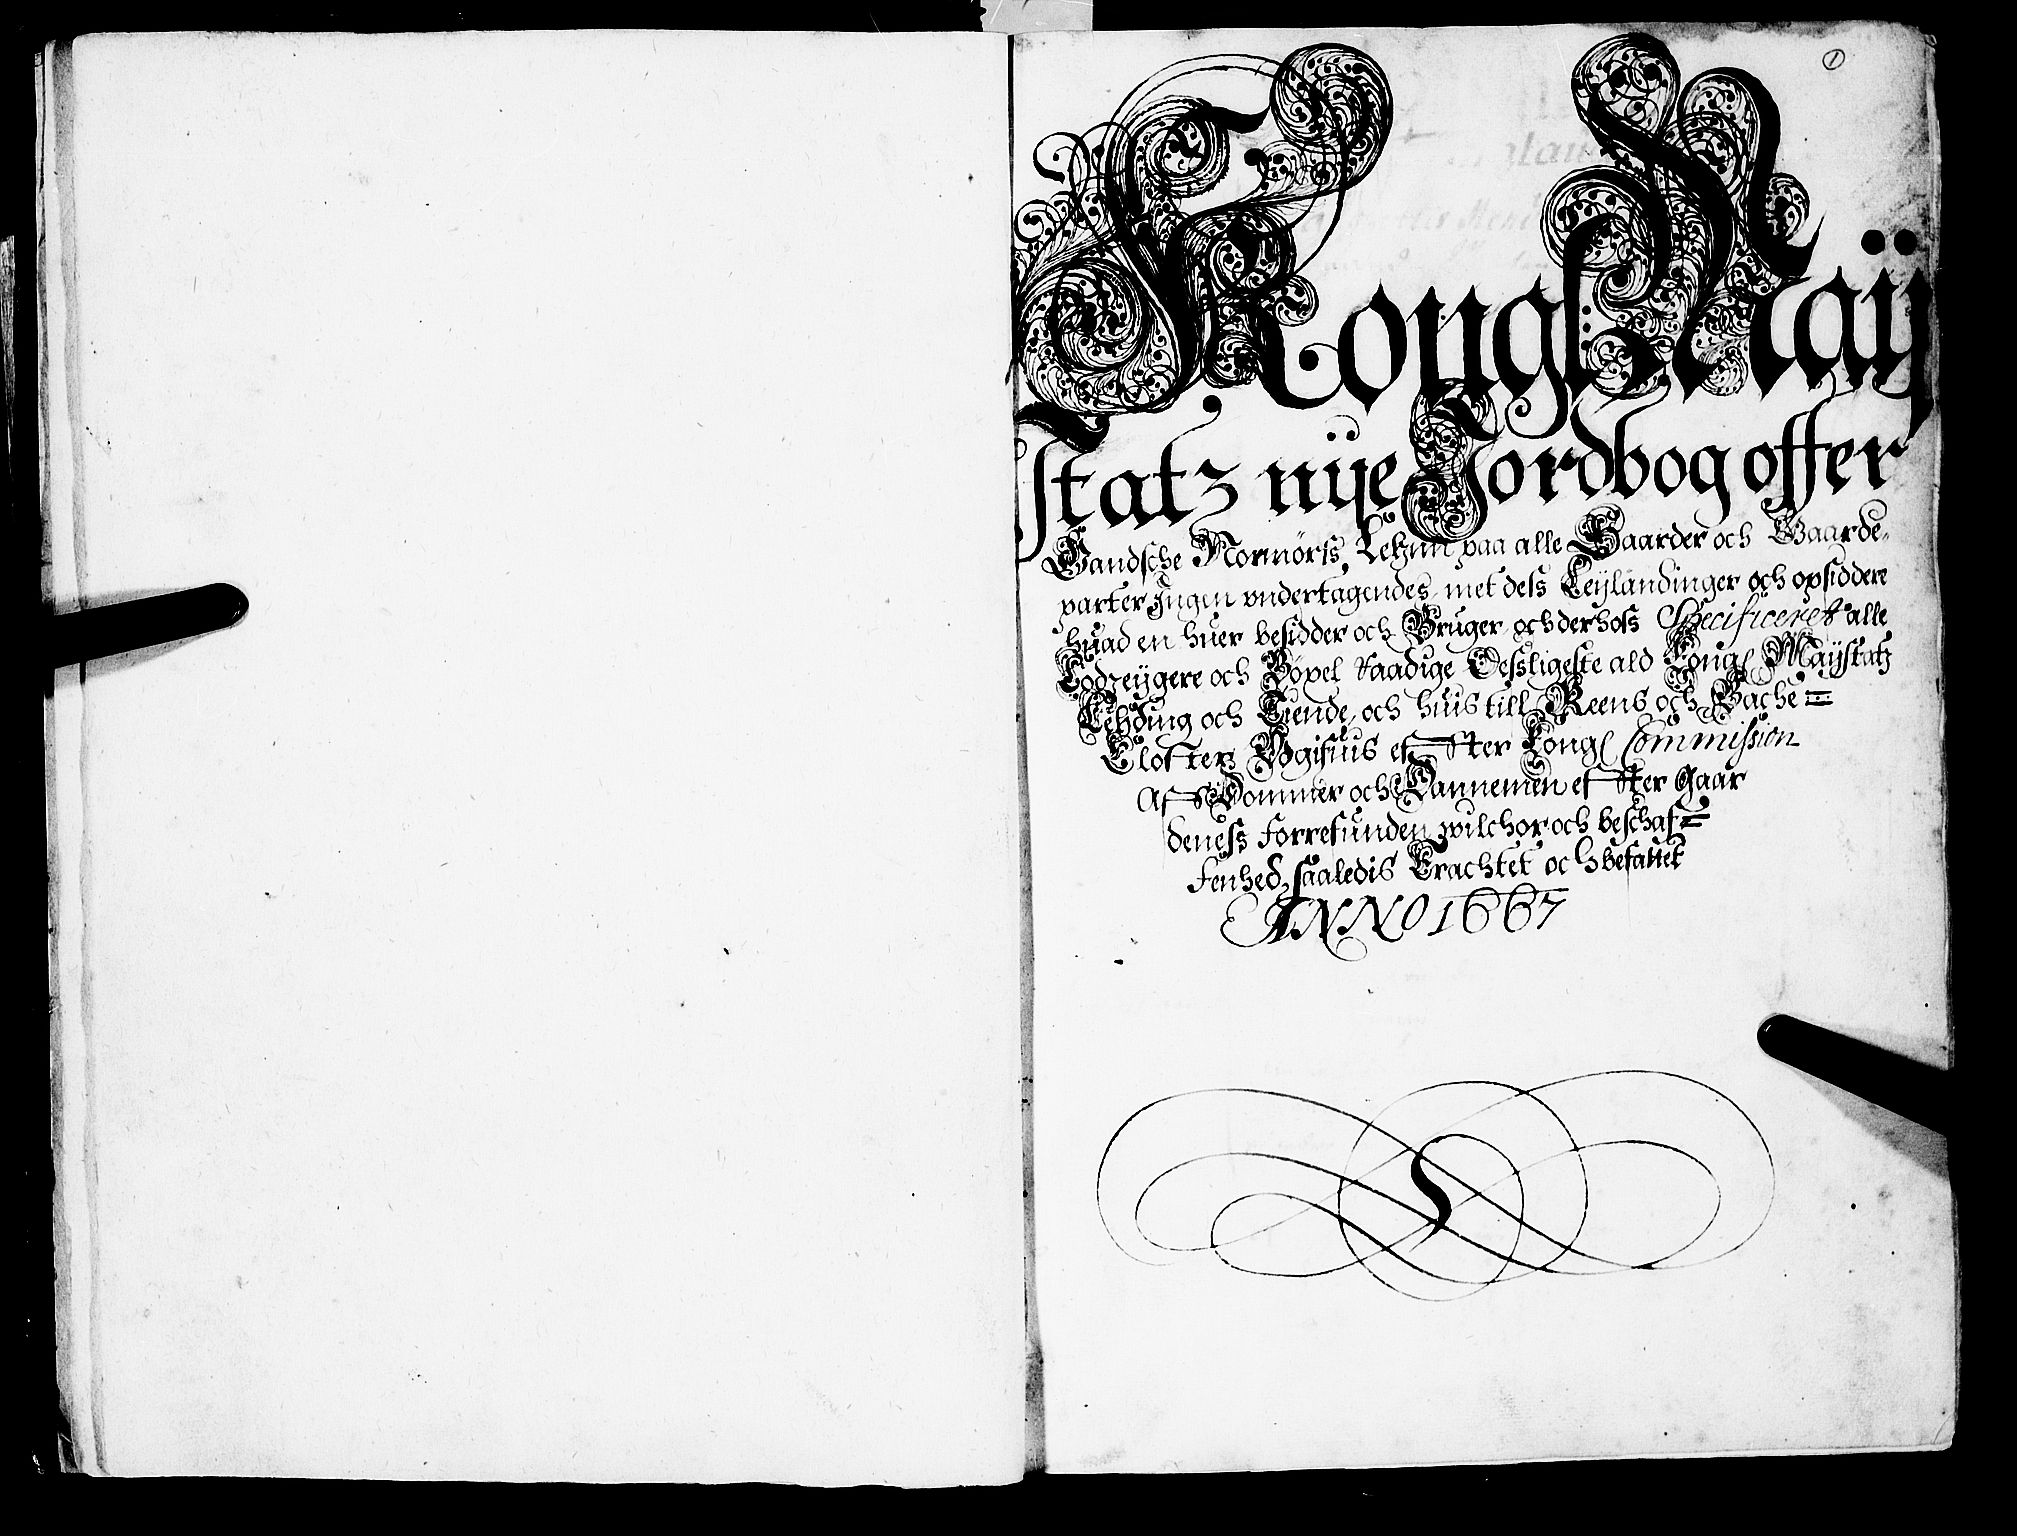 1
Kongl Maÿ
statz nÿe Jordbog offer
Gandsche Normøris Lehnn paa alle Gaarder och Gaarde,
parter Ingen vndertagendes, met dess Leÿlandinger och opsiddere
huad en huer besidder och Bruger, och derhoss Specificeret alle
Lodzeÿgere och Bøxel Raadige Dessligeste ald Kongl Maÿstatz
Lehding och Tiende, och huis till Reens och Bache =
Closterz Vgifuis effter Kongl Commission
Aff S Dommer och Dannemen effter Gaar
deness forrefunden wilchor och beschaf=
fenhed, saaledis Erachtet och befattet
ANNO 1667